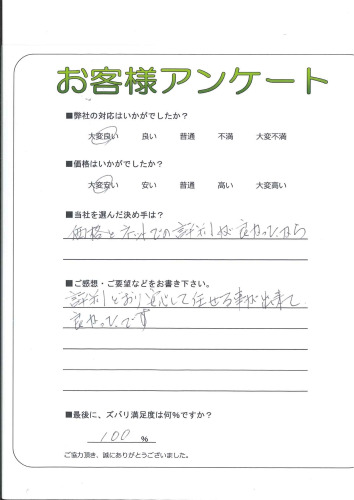 お客様アンケート
■弊社の対応はいかがでしたか?
大変良い 良い 普通 不満 大変不満
■価格はいかがでしたか?
大変安い 安い 普通 高い 大変高い
■当社を選んだ決め手は?
価格とネットでの評判が良かったから
■ご感想・ご要望などをお書き下さい。
評判どおり安心して任せる事が出来て
良かったです
■最後に、ズバリ満足度は何%ですか?
100 %
ご協力頂き、誠にありがとうございました。